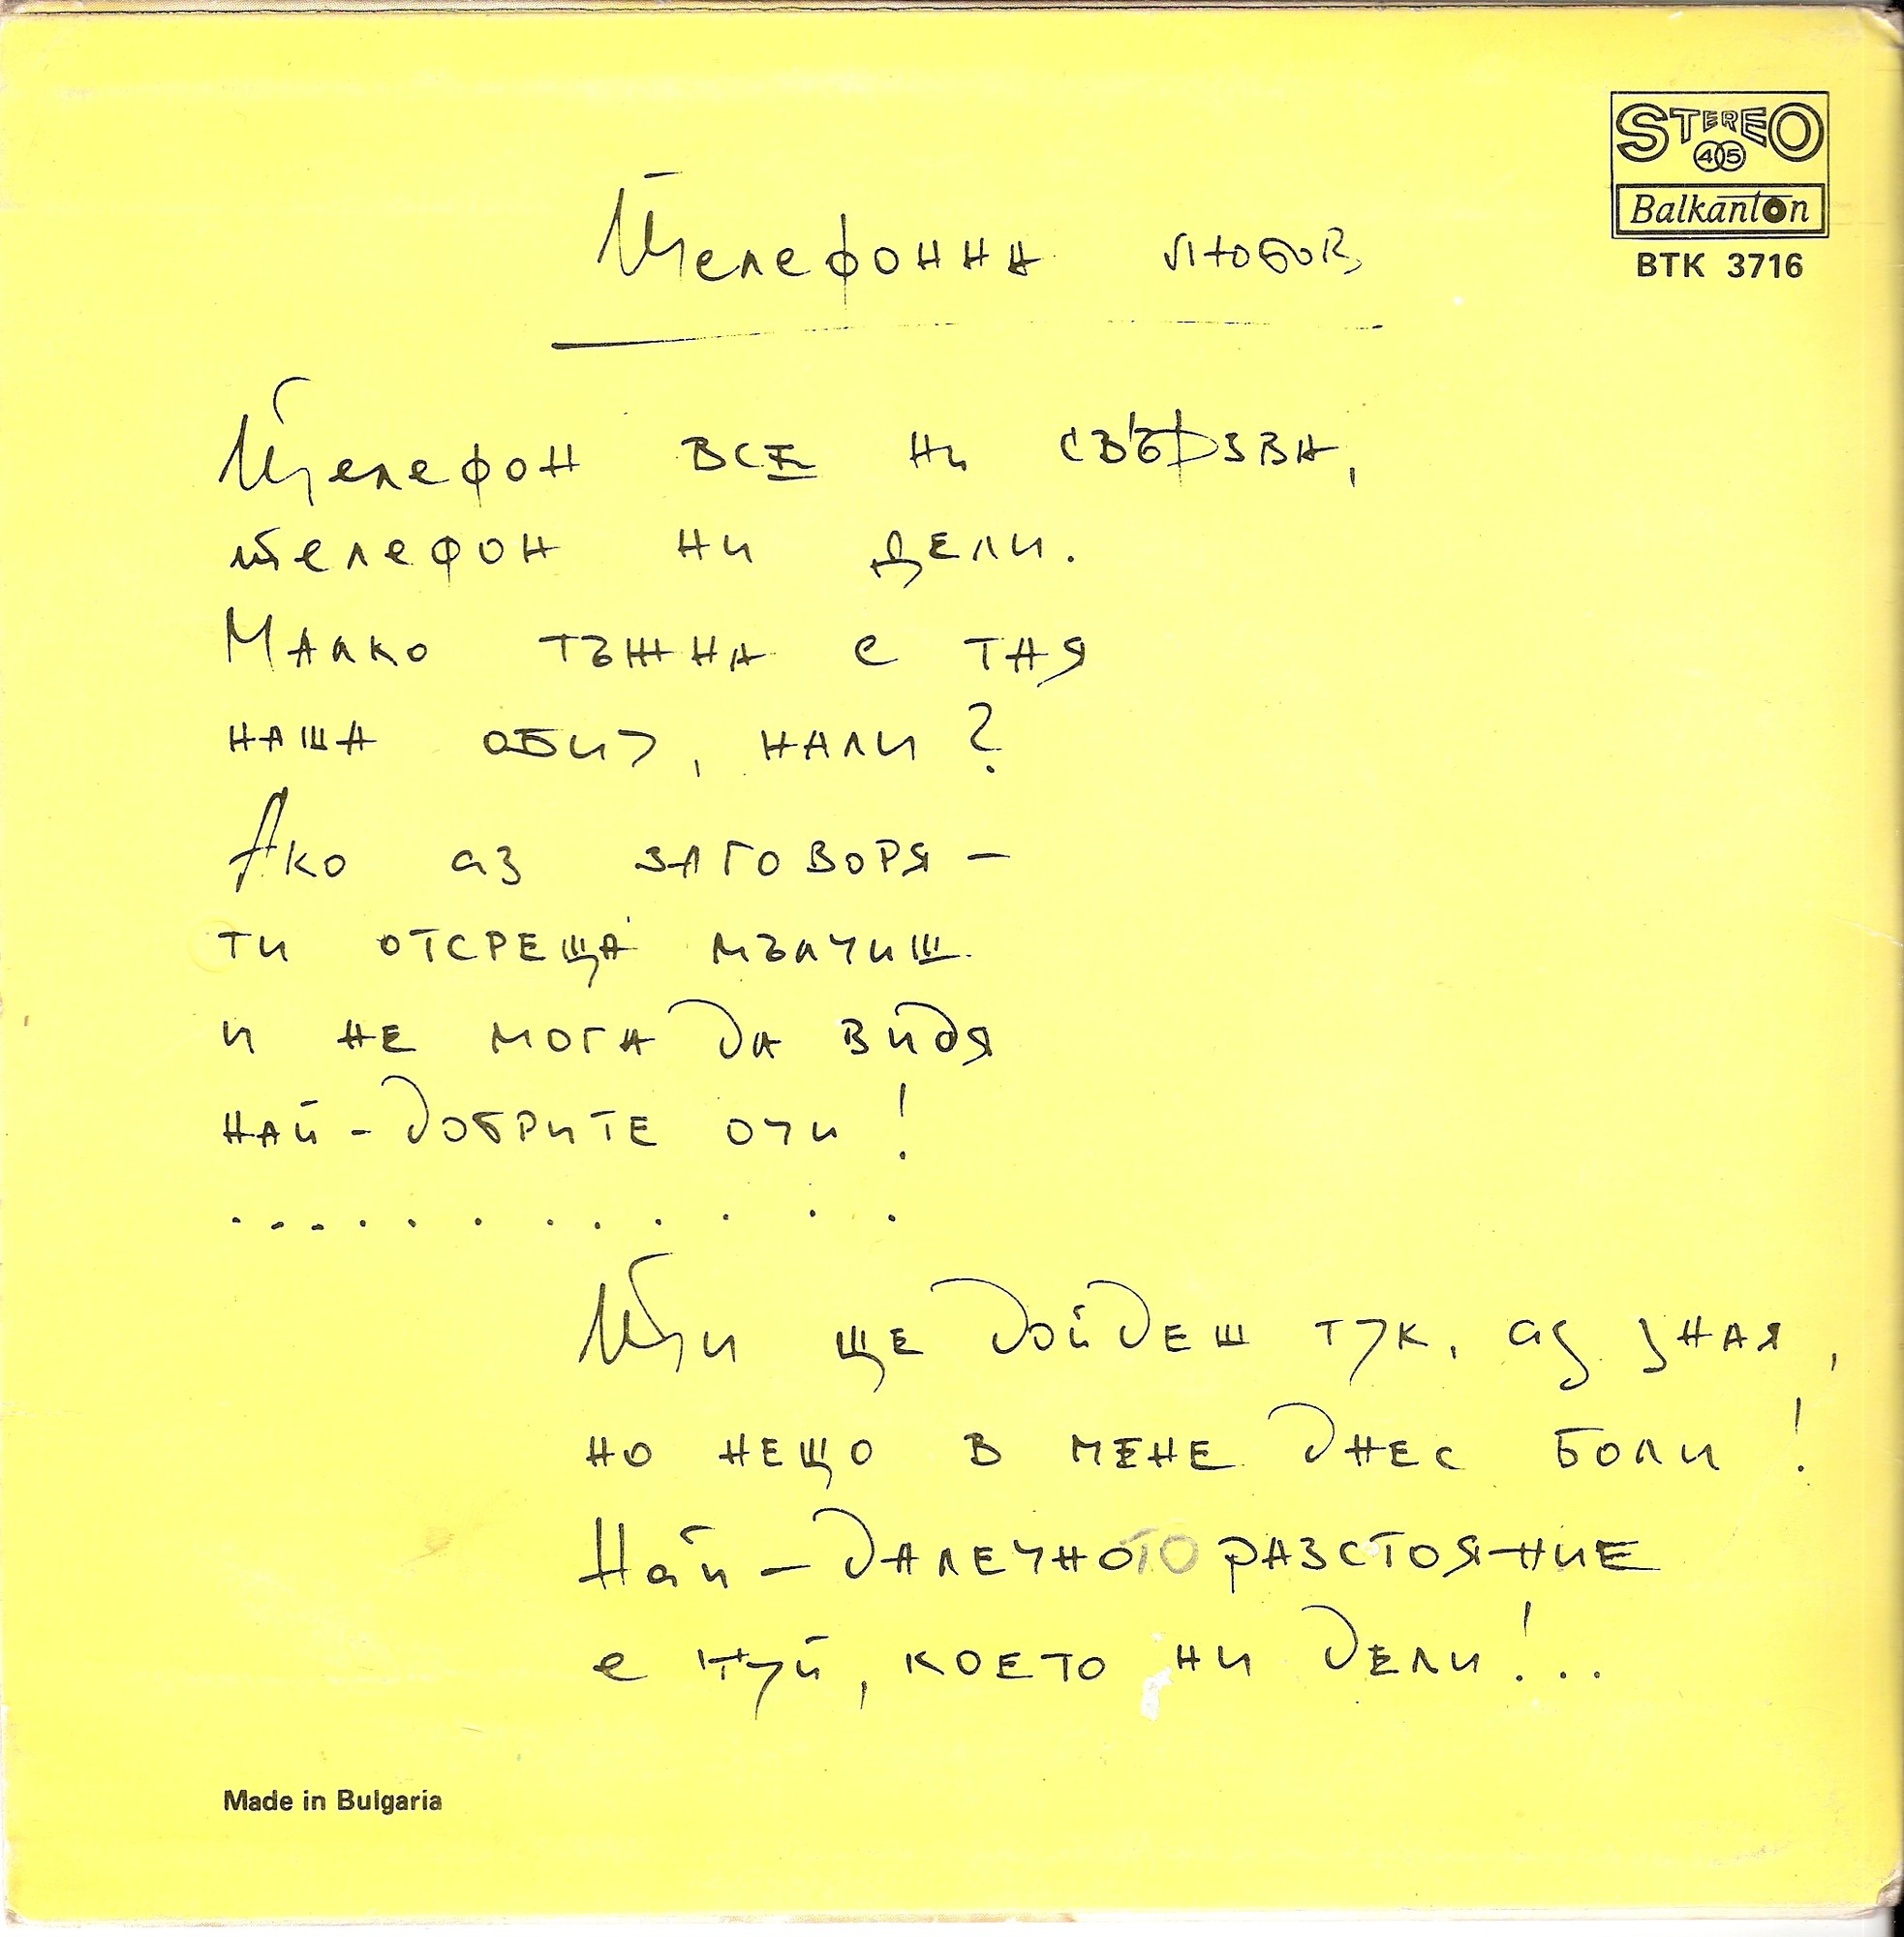 STEREO
45
Balkanton
ВТК 3716
Телефонна любов
Телефон все ни свързва,
телефон ни дели.
Малко тъжна е тая
наша обич, нали?
Ако аз заговоря –
ти отсреща мълчиш
и не мога да видя
най-добрите очи!
. . . . . . . . . . . . .
Ти ще дойдеш тук, аз зная,
но нещо в мене днес боли!
Най-далечното разстояние
е туй, което ни дели!...
Made in Bulgaria